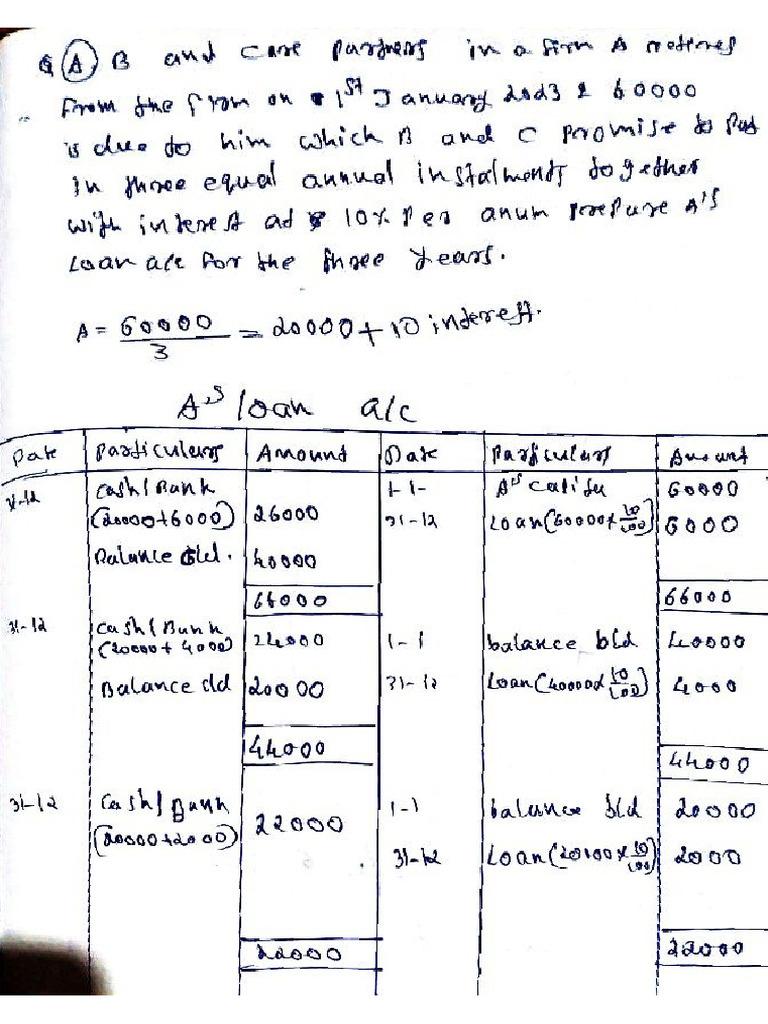 Q (A), B and C are Partners in a firm A retires
From the firm on 1st January 2023 & 60000
is due to him which B and C promise to Pay
In three equal annual instalments together
with interest at 10% Per anum prepare A's
Loan a/c for the three years.
A = 60000/3 = 20000 + 10 interest.
A's loan a/c
Date Particulars Amount Date Particulars Amount
31-12 Cash/Bank 1-1- A's 60000
(20000+6000) 26000 31-12 Loan (60000 x 10/100) 6000
Balance c/d. 40000
66000 66000
31-12 Cash/Bank
(20000 + 4000) 24000 1-1 balance b/d 40000
Balance c/d 20000 31-12 Loan (40000 x 10/100) 4000
44000 44000
31-12 Cash/Bank 22000 1-1 balance b/d 20000
(20000+2000)
31-12 Loan (20000 x 10/100) 2000
22000 22000